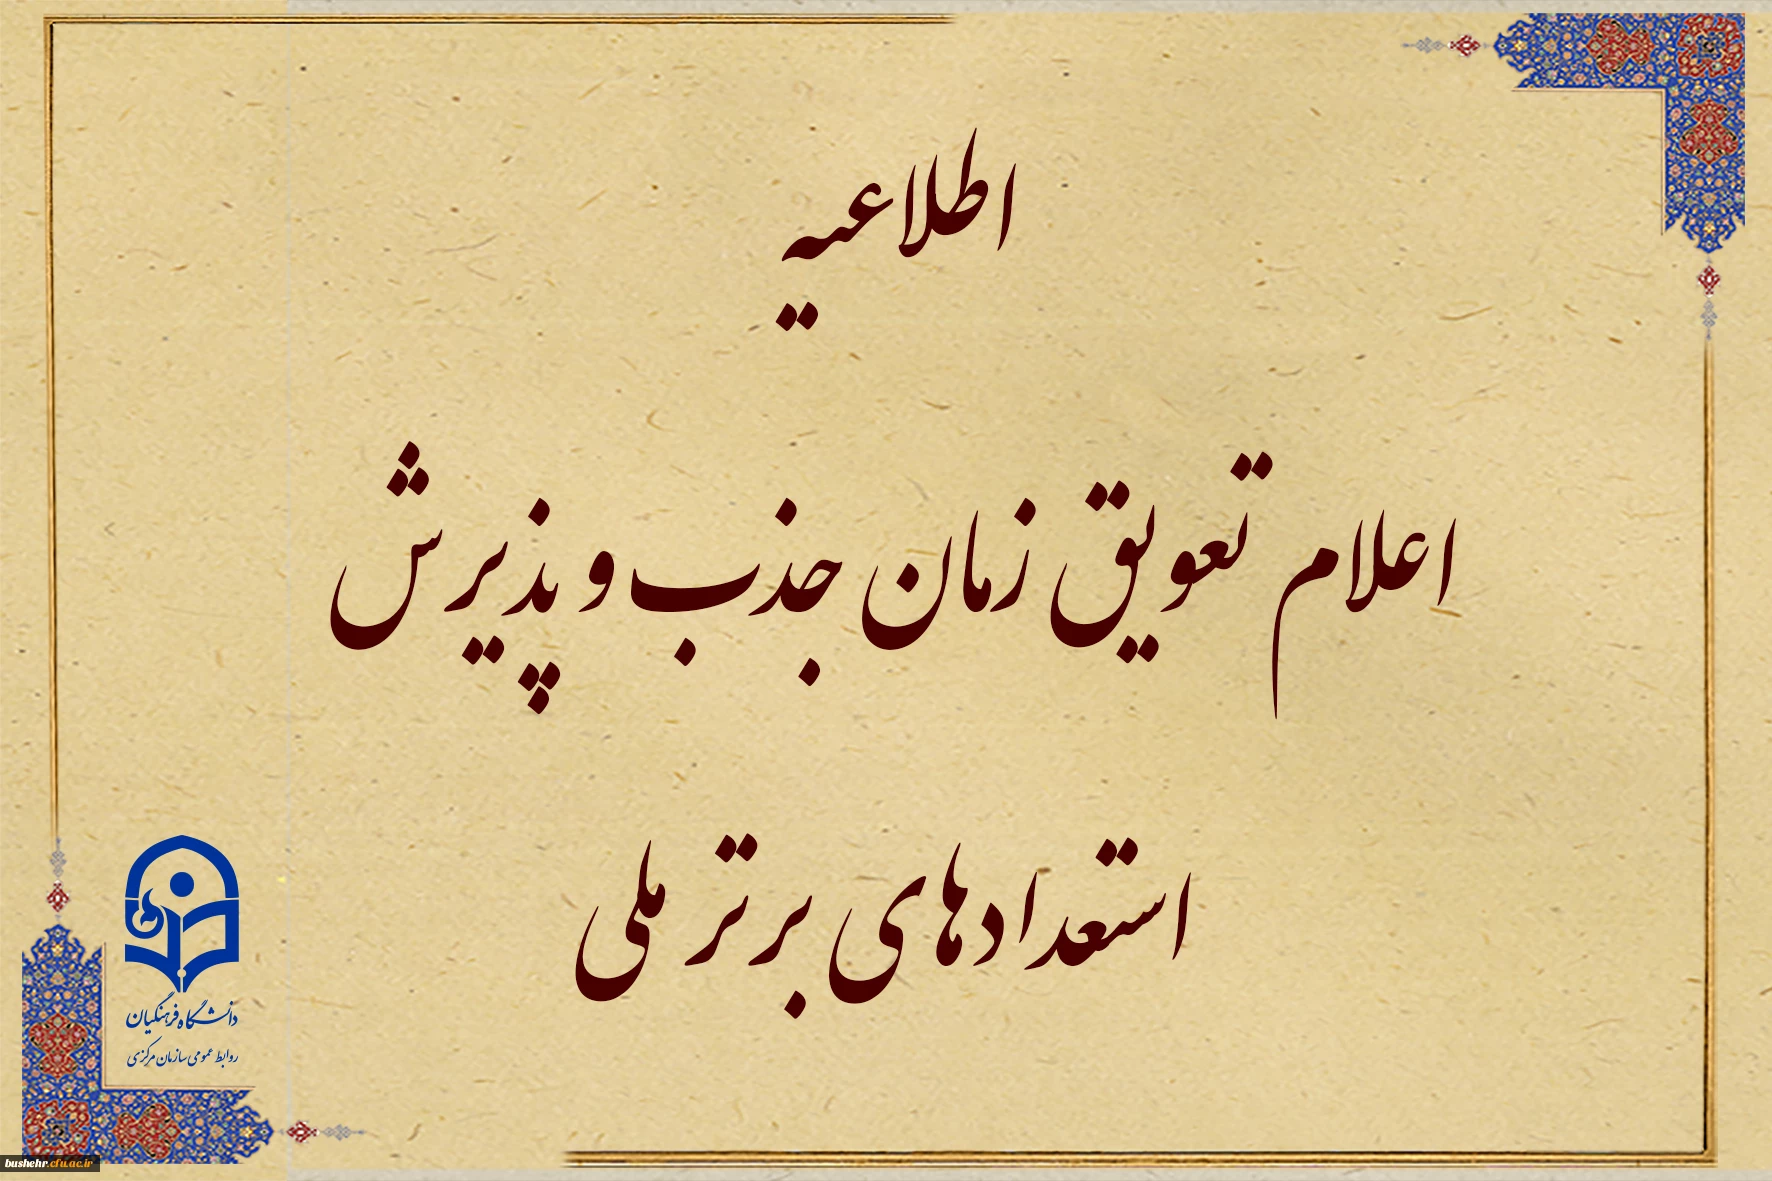 اطلاعیه
اعلام تعویق زمان جذب و پذیرش
استعدادهای برتر ملی
دانشگاه فرهنگیان
روابط عمومی سازمان مرکزی
bushehr.cfu.ac.ir